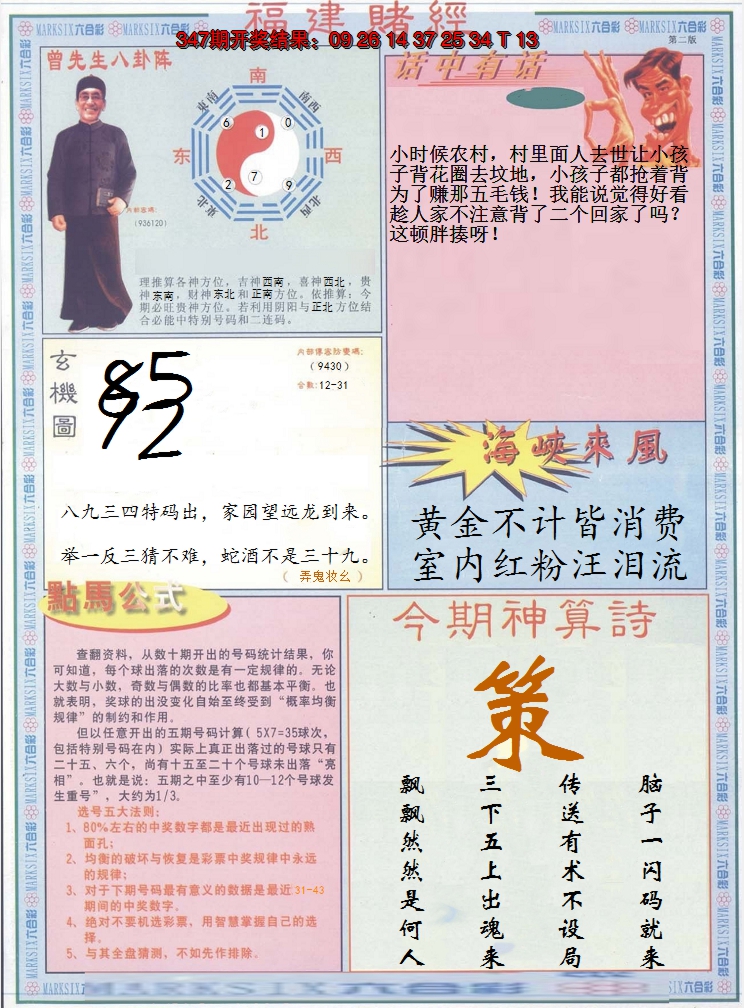 福建賭經
347期开奖结果：09 26 14 37 25 34 T 13
第二版
曾先生八卦阵
南
东南
西南
东
西
东北
西北
北
6
1
0
2
7
9
(936120)
理推算各神方位，吉神西南，喜神西北，贵
神东南，财神东北和正南方位。依推算：今
期必旺贵神方位。若利用阴阳与正北方位结
合必能中特别号码和二连码。
话中有话
小时候农村，村里面人去世让小孩
子背花圈去坟地，小孩子都抢着背
为了赚那五毛钱！我能说觉得好看
趁人家不注意背了二个回家了吗？
这顿胖揍呀！
玄機圖
85
92
（9430）
合数:12-31
八九三四特码出，家园望远龙到来。
举一反三猜不难，蛇酒不是三十九。
（ 弄鬼妆幺 ）
海峽來風
黄金不计皆消费
室内红粉汪泪流
點馬公式
查翻资料，从数十期开出的号码统计结果，你
可知道，每个球出落的次数是有一定规律的。无论
大数与小数，奇数与偶数的比率也都基本平衡。也
就表明，奖球的出没变化自始至终受到“概率均衡
规律”的制约和作用。
但以任意开出的五期号码计算( 5X7=35球次，
包括特别号码在内) 实际上真正出落过的号球只有
二十五、六个，尚有十五至二十个号球未出落“亮
相”。也就是说：五期之中至少有10—12个号球发
生重号”，大约为1/3。
选号五大法则：
1、80%左右的中奖数字都是最近出现过的熟
面孔；
2、均衡的破坏与恢复是彩票中奖规律中永远
的规律；
3、对于下期号码最有意义的数据是最近31-43
期间的中奖数字。
4、绝对不要机选彩票，用智慧掌握自己的选
择。
5、与其全盘猜测，不如先作排除。
今期神算詩
策
脑子一闪码就来
传送有术不设局
三下五上出魂来
飘飘然然是何人
MARKSIX六合彩